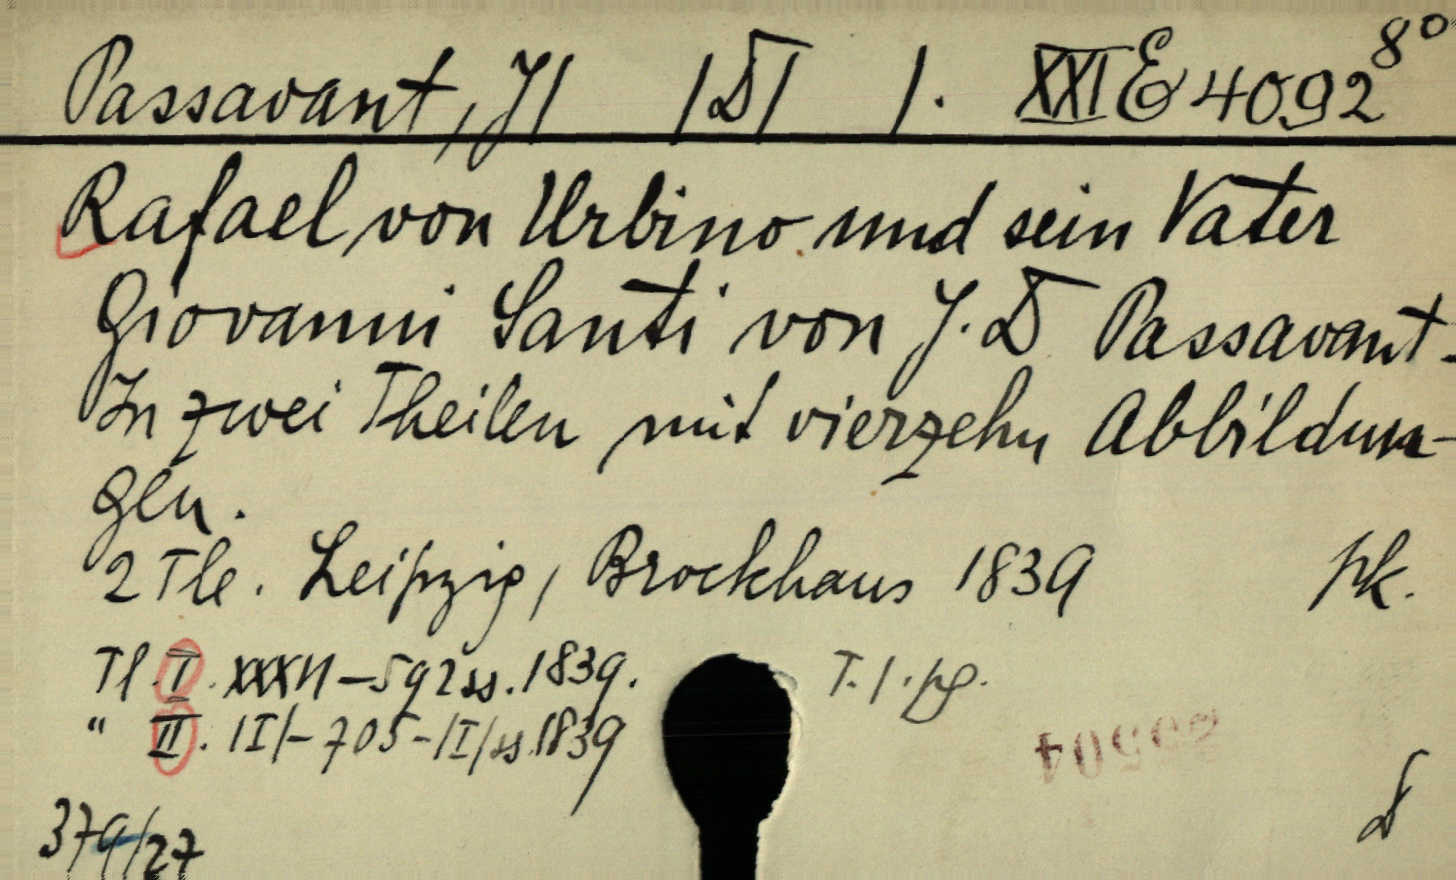 Passavant, J/ /D/ 1. XXI E 4092 8°
Rafael von Urbino und sein Vater
Giovanni Santi von J. D Passavant-
In zwei Theilen mit vierzehn Abbildun-
gen.
2 Tle. Leipzig, Brockhaus 1839 pk.
Tl. I. XXXII-592 ss. 1839. T. 1. pg.
" II. /I/-705-/I/ ss. 1839
379/27